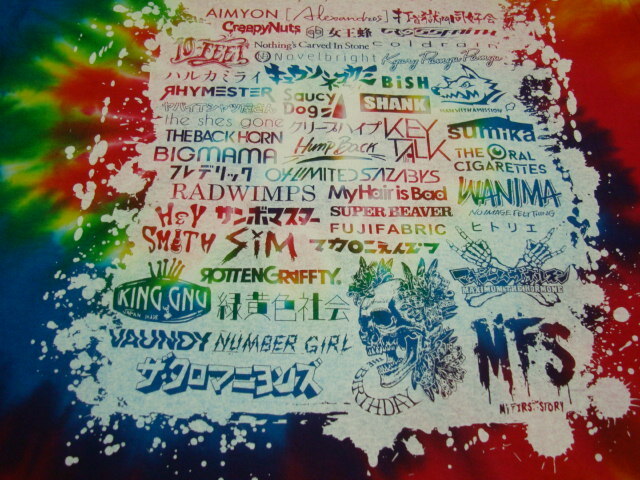 AIMYON [Alexandros] 打首獄門同好会
CreepyNuts 女王蜂 go!go!vanillas
10-FEET Nothing's Carved In Stone coldrain
Novelbright Kyary Pamyu Pamyu
ハルカミライ キュウソネコカミ BiSH
RHYMESTER Saucy Dog SHANK MAN WITH A MISSION
ヤバイTシャツ屋さん
the shes gone クリープハイプ KEYTALK sumika
THE BACK HORN Hump Back THE ORAL CIGARETTES
BIGMAMA
フレデリック 04 LIMITED SAZABYS
RADWIMPS My Hair is Bad WANIMA
HEY-SMITH サンボマスター SUPER BEAVER NO IMAGE FELT THING
FUJIFABRIC ヒトリエ
SiM マカロニえんぴつ
ROTTENGRAFFTY. マキシマムザホルモン
MAXIMUM THE HORMONE
KING GNU 緑黄色社会
JAPAN MADE
VAUNDY NUMBER GIRL MFS
ザ・クロマニヨンズ BIRTHDAY
MY FIRST STORY